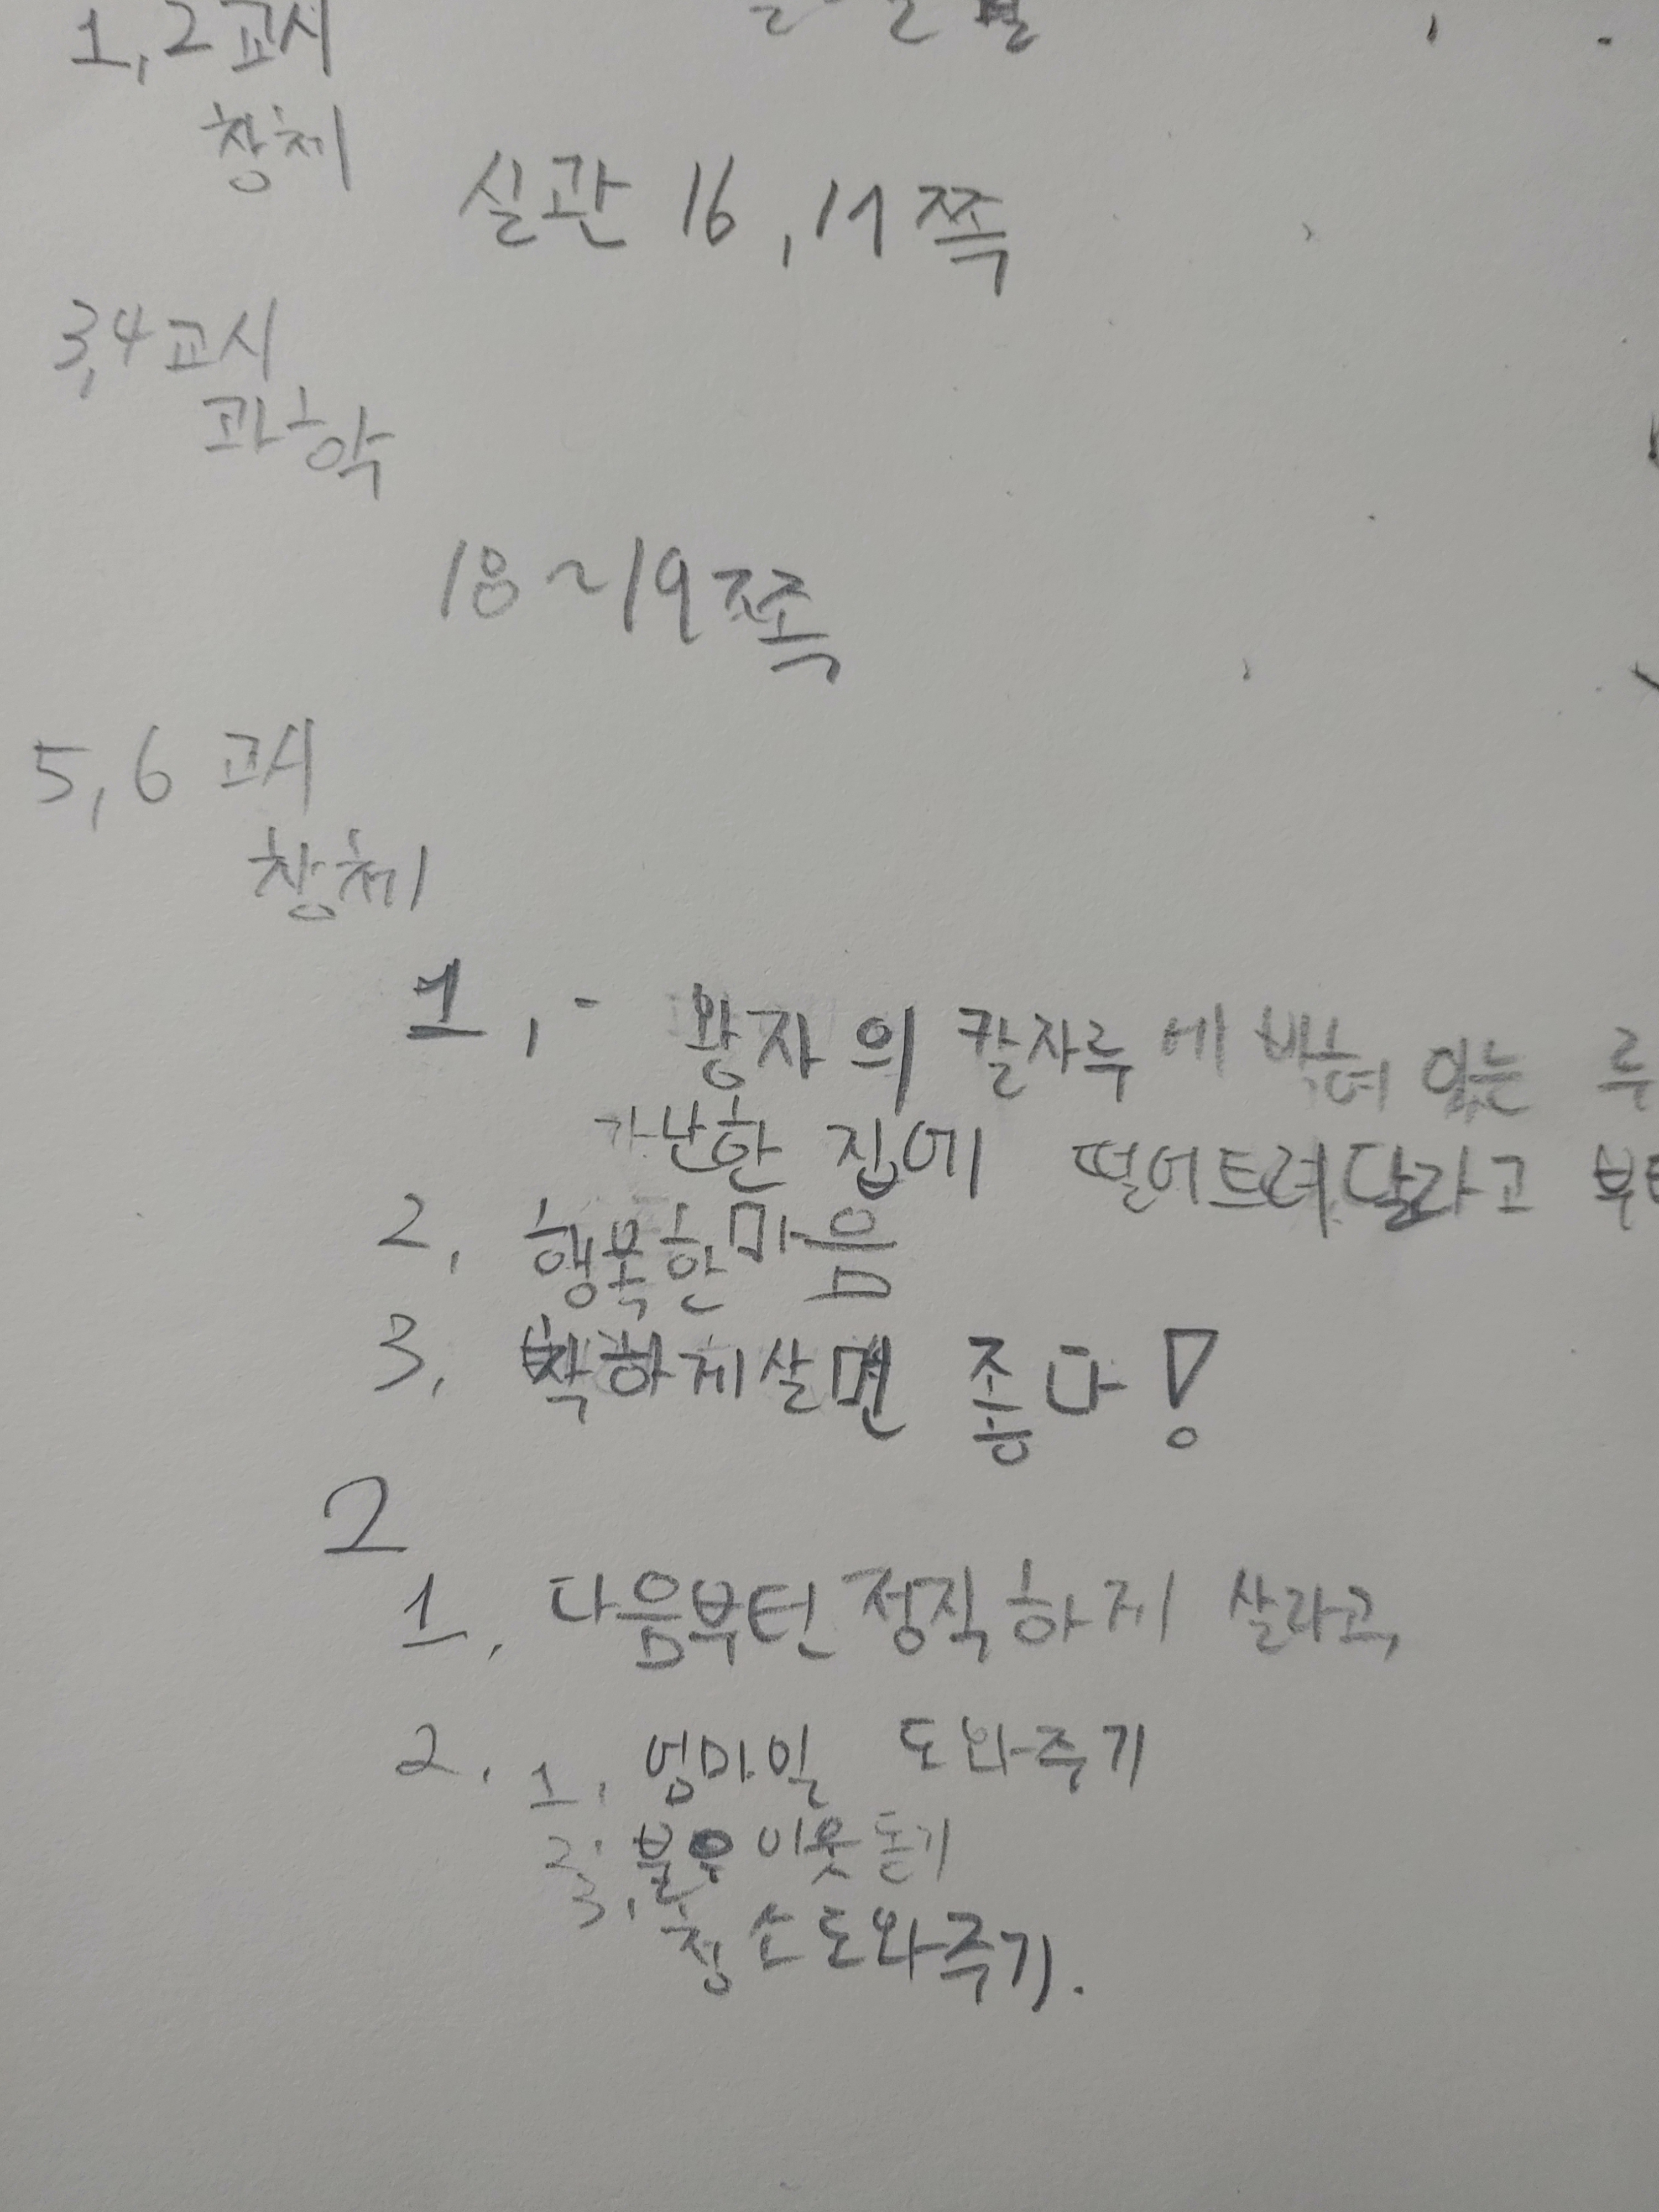 1, 2 교시
창체
실관 16, 17쪽
3,4 교시
과학
18~19쪽
5, 6 교시
창체
1, - 왕자의 칼자루에 박혀 있는 루
가난한 집에 떨어트려달라고
2, 행복한 마음
3, 착하게 살면 좋다!
2
1, 다음부턴 정직하게 살라고,
2, 1, 엄마일 도와주기
2, 불우이웃 돋기
3, 청소 도와주기.